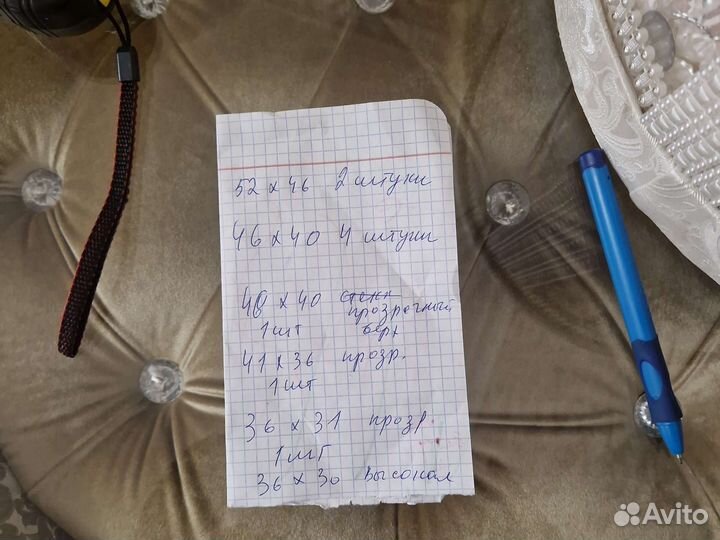 52 x 46 2 штуки
46 x 40 4 штуки
48 x 40 стекл
прозрачный
1 шт верх
41 x 36 прозр.
1 шт
36 x 31 прозр.
1 шт
36 x 30 высокая
Avito